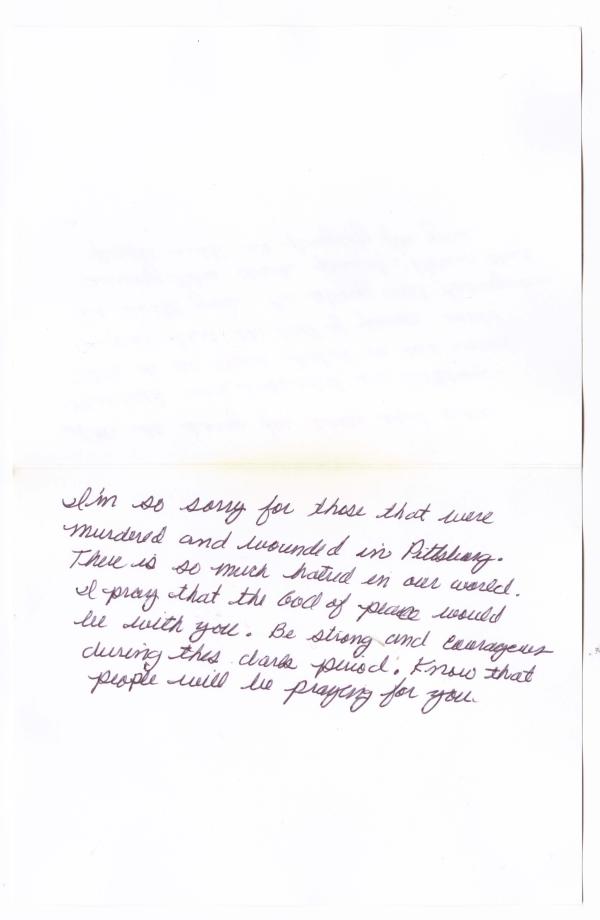 I'm so sorry for those that were
murdered and wounded in Pittsburg.
There is so much hatred in our world.
I pray that the God of peace would
be with you. Be strong and courageous
during this dark period. Know that
people will be praying for you.